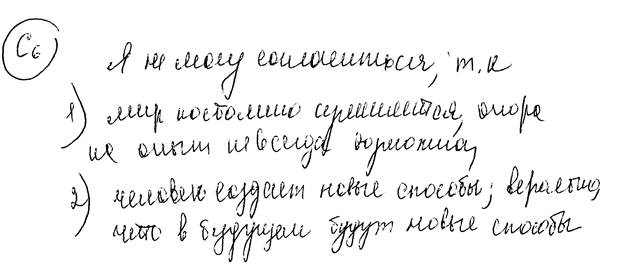 С6
Я не могу согласиться, т.к
1) мир постоянно изменяется, опора
на опыт невсегда возможна,
2) человек создает новые способы; вероятно,
что в будущем будут новые способы